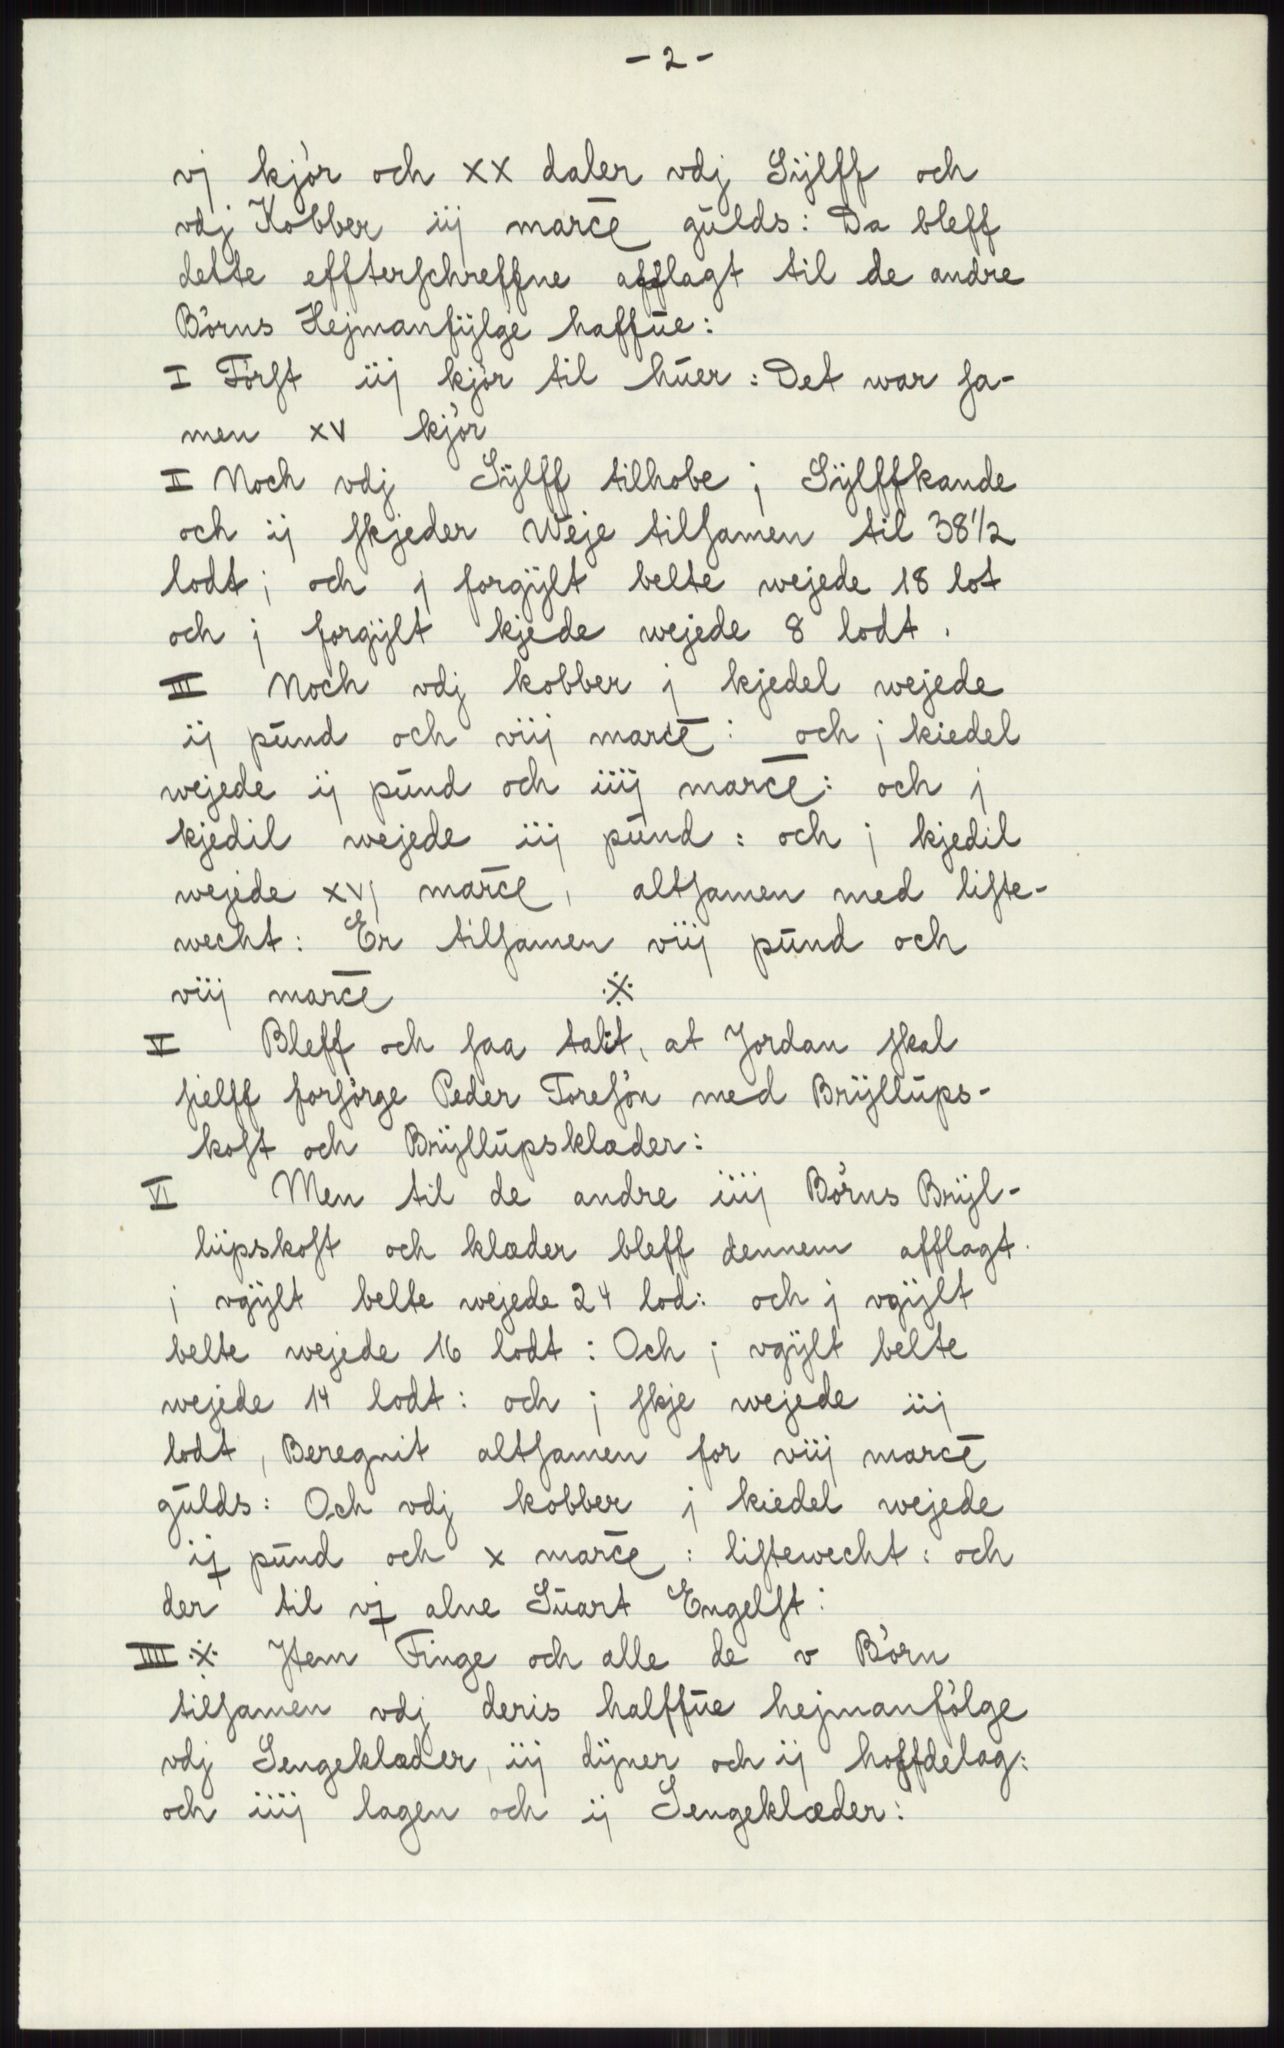 - 2 -
vj kjór och xx daler vdj Sÿlff och
vdj Kobber iij marcē gūlds: Da bleff
dette effterschreffne afflagt til de andre
Börns Hejmanfÿlge haffūe:
I Fórst iij kjór til hūer: Det war sa-
men xv kjór
II Noch vdj Sÿlff tilhobe j Sÿlffkande
och ij skjeder Weje tilsamen til 38 1/2
lodt; och j forgÿlt belte wejede 18 lot
och j forgÿlt kjede wejede 8 lodt.
III Noch vdj kobber j kjedel wejede
ij pūnd och viij marcē: och j kiedel
wejede ij pūnd och iiij marcē: och j
kjedil wejede iij pūnd: och j kjedil
wejede xvj marcē, altsamen med liste-
wecht: Er tilsamen viij pūnd och
viij marcē ※
V Bleff och saa talit, at Jordan skal
sielff forsórge Peder Toresón med Brÿllūps-
kost och Brÿllūpsklæder:
VI Men til de andre iiij Börns Brÿl-
lūpskost och klæder bleff dennem afflagt.
j vgÿlt belte wejede 24 lod: och j vgÿlt
belte wejede 16 lodt: Och j vgÿlt belte
wejede 14 lodt: och j skje wejede iij
lodt, Beregnit altsamen for viij marcē
gūlds: Och vdj kobber j kiedel wejede
ij pūnd och x marcē: listewecht: och
der til vj alne Sūart Engelst:
IIII ※ Jtem Finge och alle de v Börn
tilsamen vdj deris halffūe hejmanfólge
vdj Sengeklæder, iij dÿner och ij hoffdelag:
och iiij lagen och ij Sengeklæder: